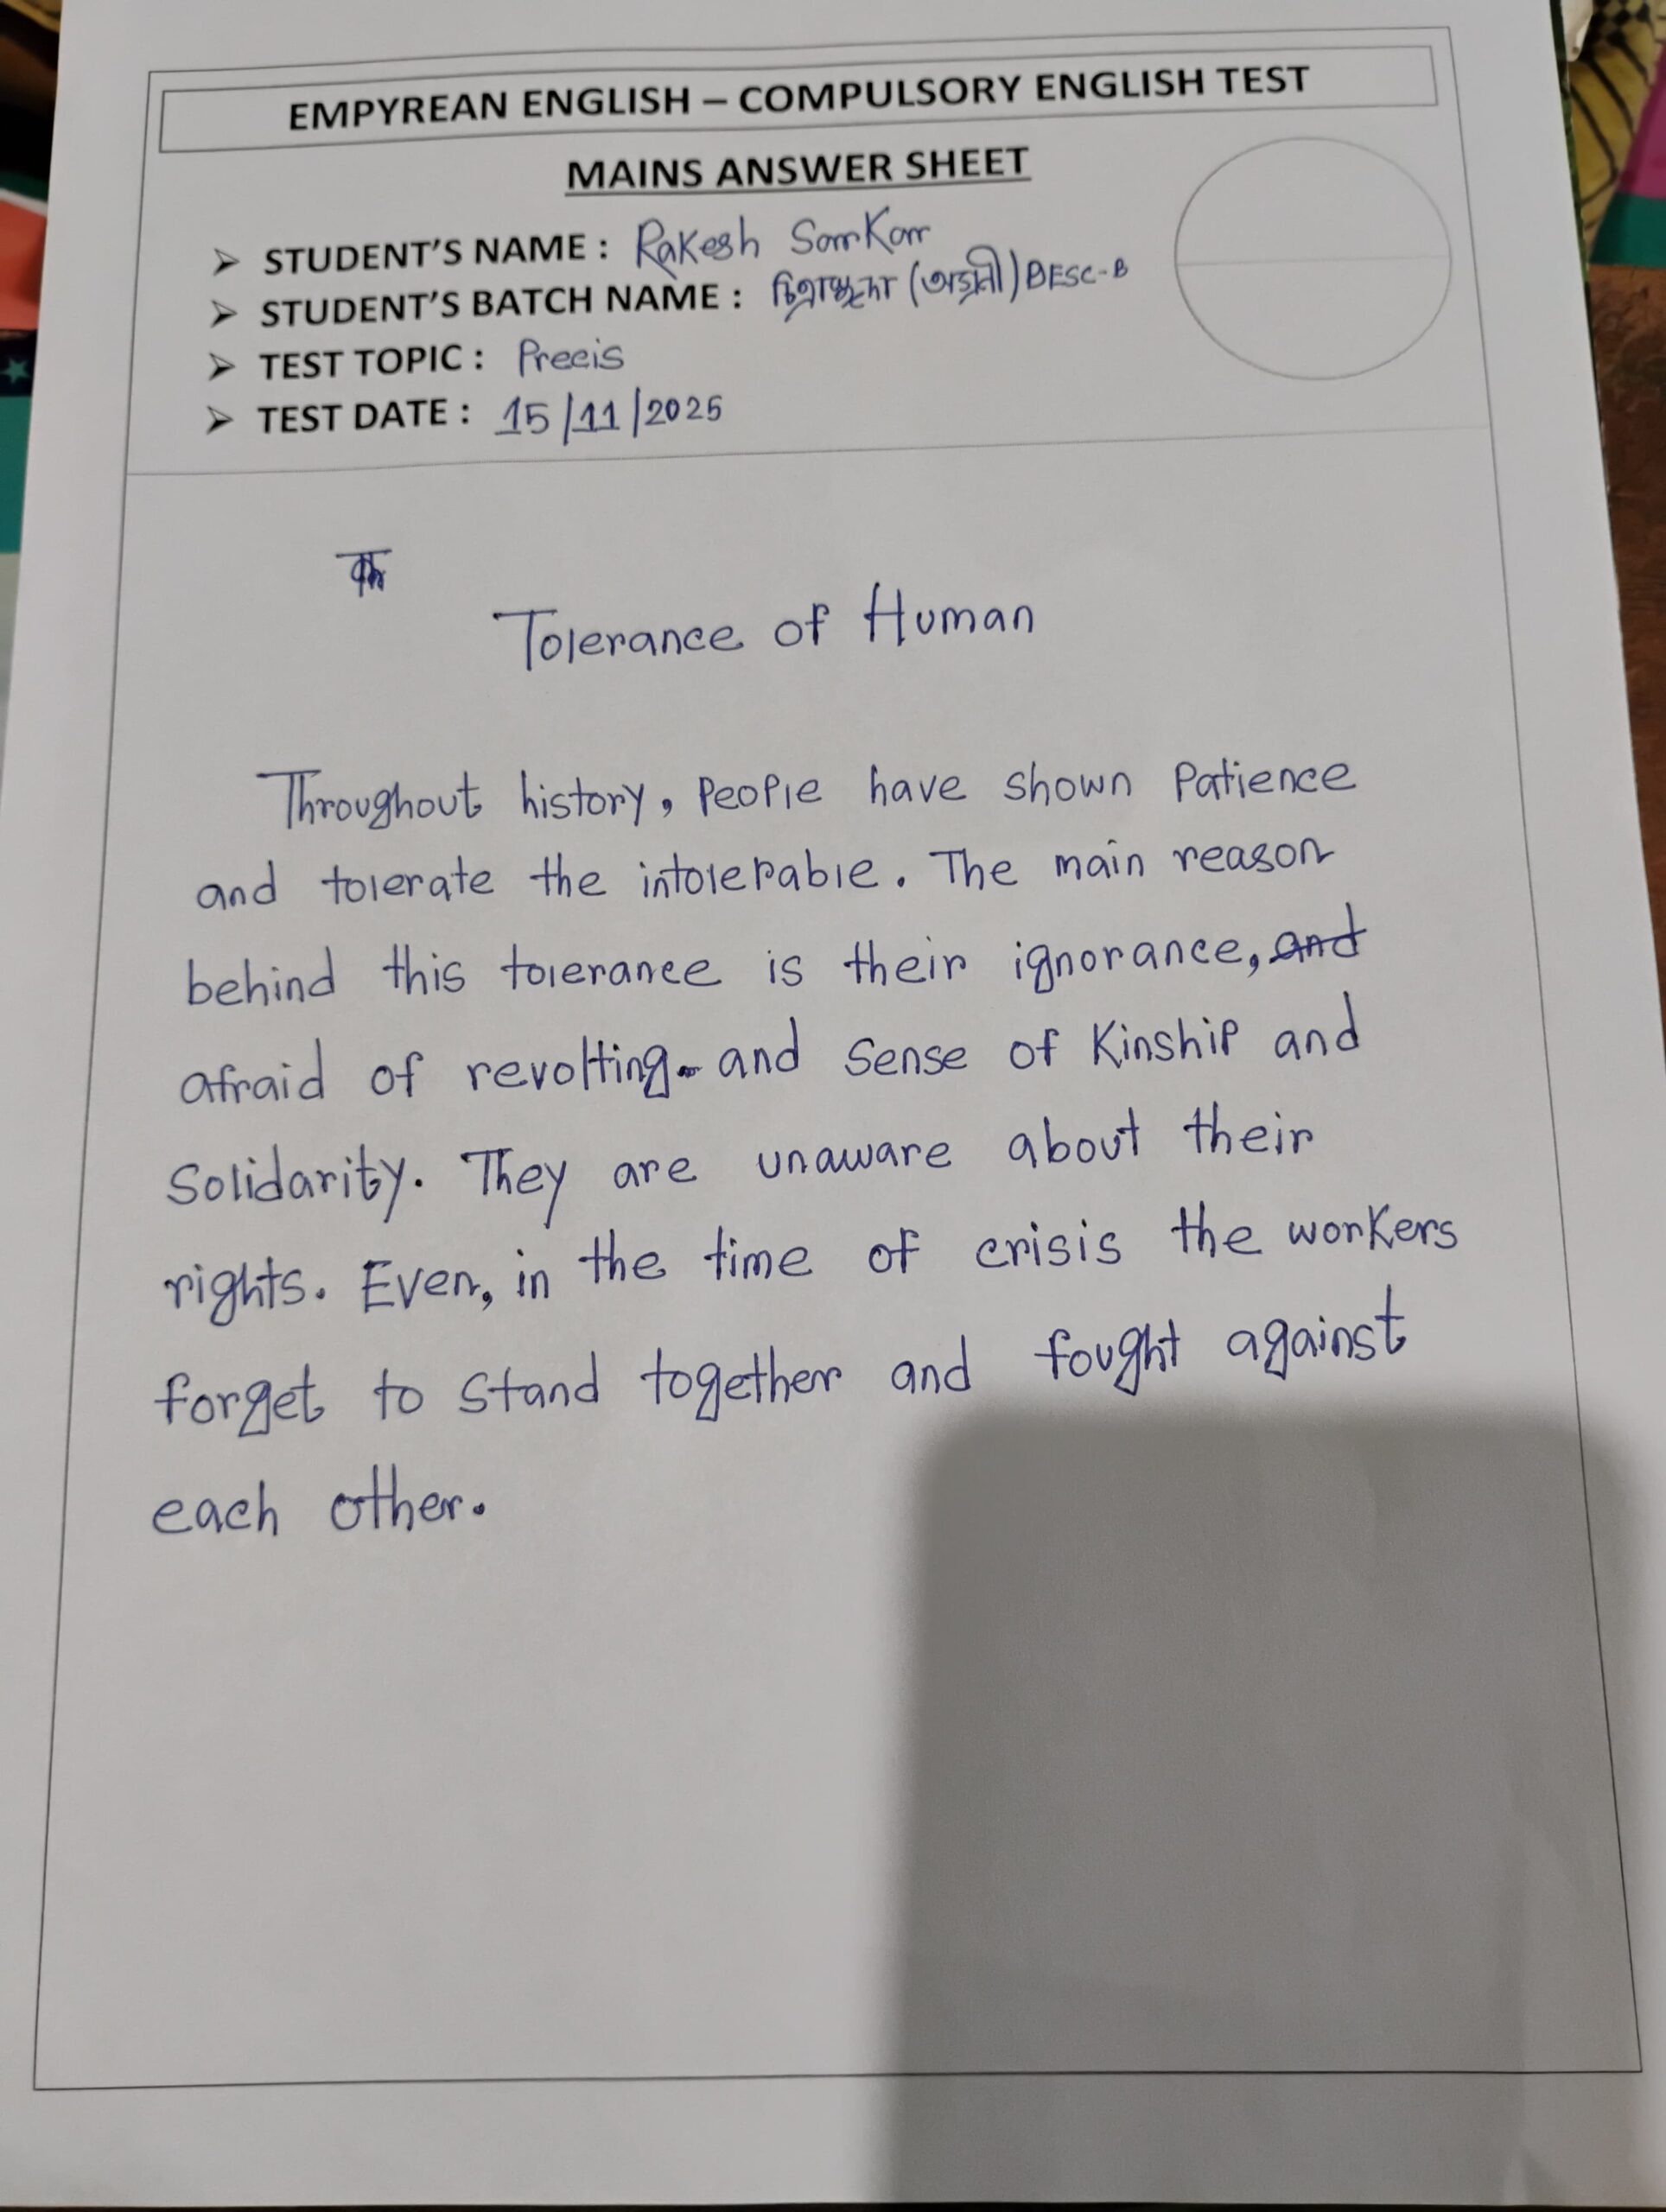 EMPYREAN ENGLISH – COMPULSORY ENGLISH TEST
MAINS ANSWER SHEET
➤ STUDENT'S NAME : Rakesh Sarkar
➤ STUDENT'S BATCH NAME : (অগ্রনী) BESC-B
➤ TEST TOPIC : Precis
➤ TEST DATE : 15/11/2025
Tolerance of Human
Throughout history, People have shown Patience
and tolerate the intolerable. The main reason
behind this tolerance is their ignorance, and
afraid of revolting and sense of Kinship and
Solidarity. They are unaware about their
rights. Even, in the time of crisis the workers
forget to stand together and fought against
each other.